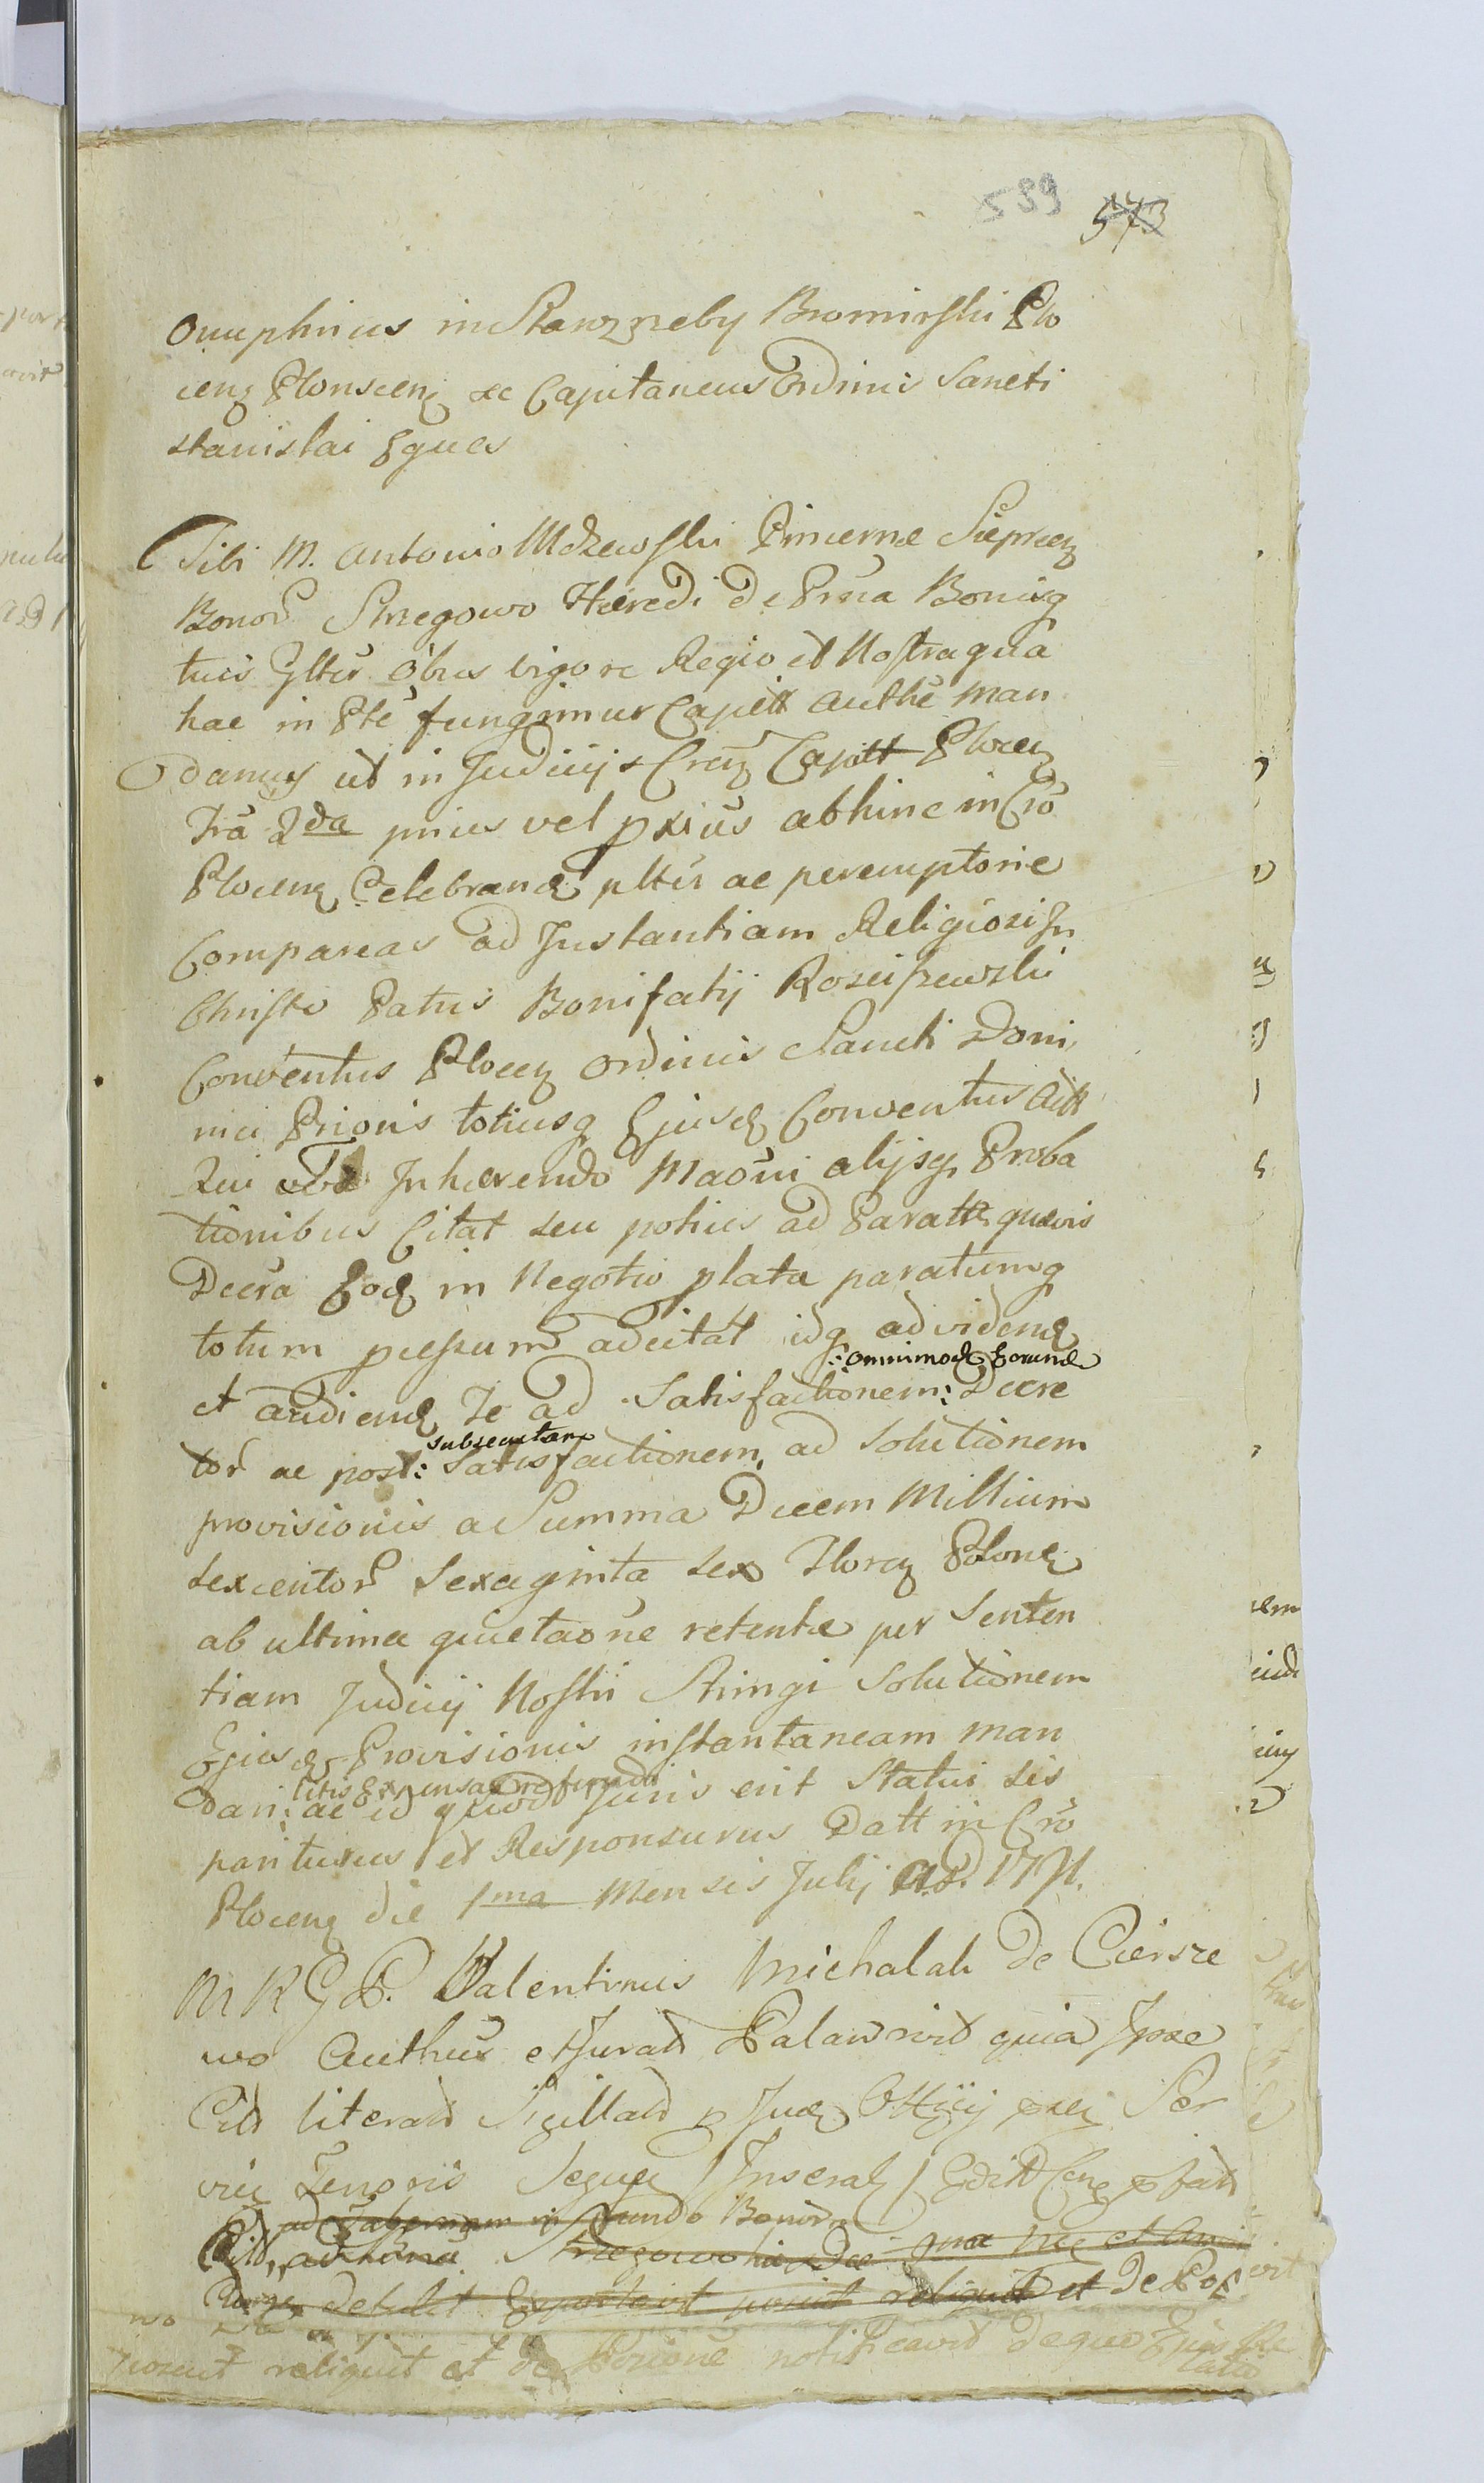 589 573
Onuphrius in Skarzneby Bromirski Plo
cenz Plonscenz &c Capitaneus Ordinis Sancti
Stanislai Eques
Tibi M. Antonio Mdzewski Pincernæ Sieprcenz
Bonor Strzegowo Hæredi de Prna Bonisq
tuis Gltér Obus vigore Regio et Nostra qua
hac in Pte fungimur Capitt Authe man
damus ut in Judicijs Crenz Capitt Plocenz
Fra 2da prius vel pxius abhinc in Cro
Plocenz Celebrand pltér ac peremptorie
Compareas ad Instantiam Religiosi In
Christo Patris Bonifatij Kosciszewski
Conventus Plocenz Ordinis Sancti Domi
nici Prioris totiusq Ejusd Conventus Act
Qui Inhærendo Maoni alijsq Proba
tionibus Citat seu potius ad Paratt quævis
Decra Eod in Negotio plata paratumq
totum pcessum adcitat idq ad vidend
:omnimod Eorund
et audiend Te ad Satisfactionem: Decre
subsecutam
tor ac post: Satisfactionem, ad Solutionem
provisionis a Summa Decem Millium
sexcentor Sexaginta sex Floren Polon
ab ultima quietaone retentæ per Senten
tiam Judicij Nostri Stringi Solutionem
Ejusd Provisionis instantaneam man
litis Expensas refundi
dari: ac id quod Juris erit Statui sis
pariturus et Responsurus Datt in Cro
Plocenz die 1ma Mensis Julij A.D. 1771.
M R G P. Valentinus Michalak de Ciersze
wo Authus et Jurat Palam rivit quia Ipse
Citt literat Sigillat p Jud Offcij pnti Ser
vie Tenoris Seque / Inserat / Edit Cenz pfatt
ad Tabernam in fundo Bonor
Citt, ad Strzegowo hæ
detulit posuit reliquit et de Pos
posuit reliquit et de Pozione notificavit de quo Ejus Re
latio